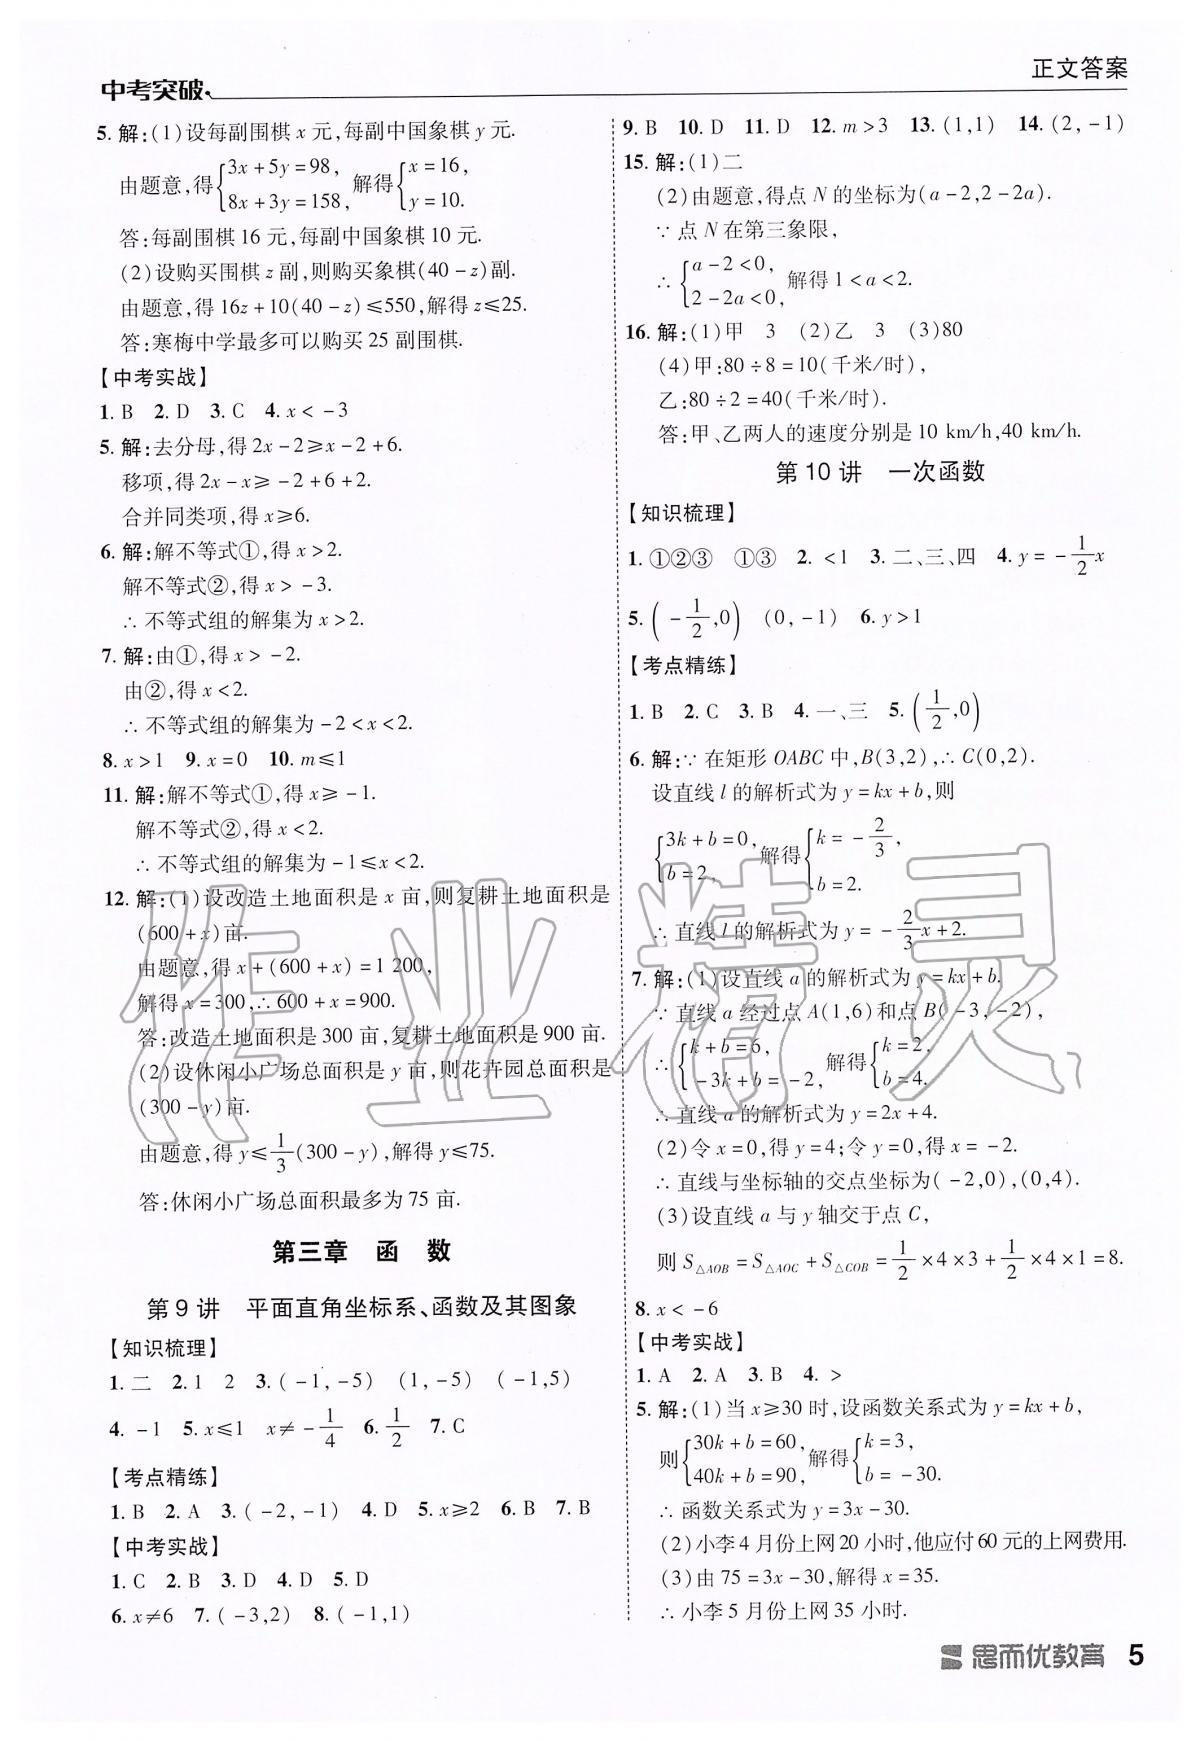 中考突破
正文答案
5. 解:(1)设每副围棋 x 元,每副中国象棋 y 元.
由题意,得{3x+5y=98, 8x+3y=158, 解得{x=16, y=10.
答:每副围棋 16 元,每副中国象棋 10 元.
(2)设购买围棋 z 副,则购买象棋(40-z)副.
由题意,得 16z+10(40-z)≤550,解得 z≤25.
答:寒梅中学最多可以购买 25 副围棋.
【中考实战】
1. B 2. D 3. C 4. x<-3
5. 解:去分母,得 2x-2≥x-2+6.
移项,得 2x-x≥-2+6+2.
合并同类项,得 x≥6.
6. 解:解不等式①,得 x>2.
解不等式②,得 x>-3.
∴ 不等式组的解集为 x>2.
7. 解:由①,得 x>-2.
由②,得 x<2.
∴ 不等式组的解集为 -2<x<2.
8. x>1 9. x=0 10. m≤1
11. 解:解不等式①,得 x≥-1.
解不等式②,得 x<2.
∴ 不等式组的解集为 -1≤x<2.
12. 解:(1)设改造土地面积是 x 亩,则复耕土地面积是
(600+x)亩.
由题意,得 x+(600+x)=1 200,
解得 x=300,∴ 600+x=900.
答:改造土地面积是 300 亩,复耕土地面积是 900 亩.
(2)设休闲小广场总面积是 y 亩,则花卉园总面积是
(300-y)亩.
由题意,得 y≤1/3(300-y),解得 y≤75.
答:休闲小广场总面积最多为 75 亩.
第三章 函 数
第 9 讲 平面直角坐标系、函数及其图象
【知识梳理】
1. 二 2. 1 2 3. (-1,-5) (1,-5) (-1,5)
4. -1 5. x≤1 x≠-1/4 6. 1/2 7. C
【考点精练】
1. B 2. A 3. (-2,-1) 4. D 5. x≥2 6. B 7. B
【中考实战】
1. C 2. B 3. D 4. D 5. D
6. x≠6 7. (-3,2) 8. (-1,1)
9. B 10. D 11. D 12. m>3 13. (1,1) 14. (2,-1)
15. 解:(1)二
(2)由题意,得点 N 的坐标为(a-2,2-2a).
∵ 点 N 在第三象限,
∴ {a-2<0, 2-2a<0, 解得 1<a<2.
16. 解:(1)甲 3 (2)乙 3 (3)80
(4)甲:80÷8=10(千米/时),
乙:80÷2=40(千米/时).
答:甲、乙两人的速度分别是 10 km/h,40 km/h.
第 10 讲 一次函数
【知识梳理】
1. ①②③ ①③ 2. <1 3. 二、三、四 4. y=-1/2x
5. (-1/2,0) (0,-1) 6. y>1
【考点精练】
1. B 2. C 3. B 4. 一、三 5. (1/2,0)
6. 解:∵ 在矩形 OABC 中,B(3,2),∴ C(0,2).
设直线 l 的解析式为 y=kx+b,则
{3k+b=0, b=2, 解得{k=-2/3, b=2.
∴ 直线 l 的解析式为 y=-2/3x+2.
7. 解:(1)设直线 a 的解析式为 y=kx+b.
∵ 直线 a 经过点 A(1,6)和点 B(-3,-2),
∴ {k+b=6, -3k+b=-2, 解得{k=2, b=4.
∴ 直线 a 的解析式为 y=2x+4.
(2)令 x=0,得 y=4;令 y=0,得 x=-2.
∴ 直线与坐标轴的交点坐标为(-2,0),(0,4).
(3)设直线 a 与 y 轴交于点 C,
则 S△AOB=S△AOC+S△COB=1/2×4×3+1/2×4×1=8.
8. x<-6
【中考实战】
1. A 2. A 3. B 4. >
5. 解:(1)当 x≥30 时,设函数关系式为 y=kx+b,
则{30k+b=60, 40k+b=90, 解得{k=3, b=-30.
∴ 函数关系式为 y=3x-30.
(2)小李 4 月份上网 20 小时,他应付 60 元的上网费用.
(3)由 75=3x-30,解得 x=35.
∴ 小李 5 月份上网 35 小时.
作业精灵
思而优教育 5